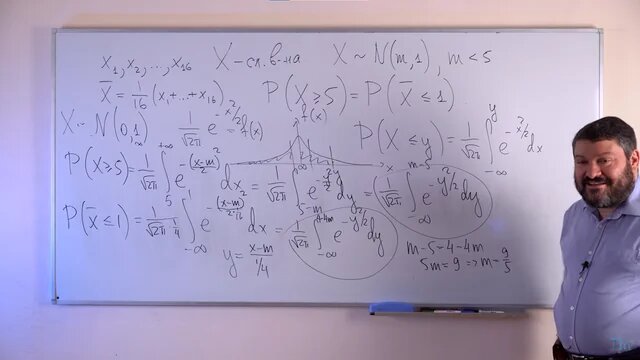 x₁, x₂, ..., x₁₆ X - сл. в-на X ~ N(m, 1), m < 5
X̄ = 1/16 (x₁ + ... + x₁₆) P(X ≥ 5) = P(X̄ ≤ 1)
X ~ N(0, 1) 1/√2π e^(-x²/2) = f(x) f(x) P(X ≤ y) = 1/√2π ∫_{-∞}^{y} e^(-x²/2) dx
P(X ≥ 5) = 1/√2π ∫_{5}^{+∞} e^(-(x-m)²/2) dx = 1/√2π ∫_{5-m}^{+∞} e^(-y²/2) dy = 1/√2π ∫_{-∞}^{m-5} e^(-y²/2) dy
x
P(X̄ ≤ 1) = 1/(√2π · 1/4) ∫_{-∞}^{1} e^(-(x-m)²/(2·1/16)) dx = 1/√2π ∫_{-∞}^{4-4m} e^(-y²/2) dy
y = (x-m)/(1/4)
m - 5 = 4 - 4m
5m = 9 => m = 9/5